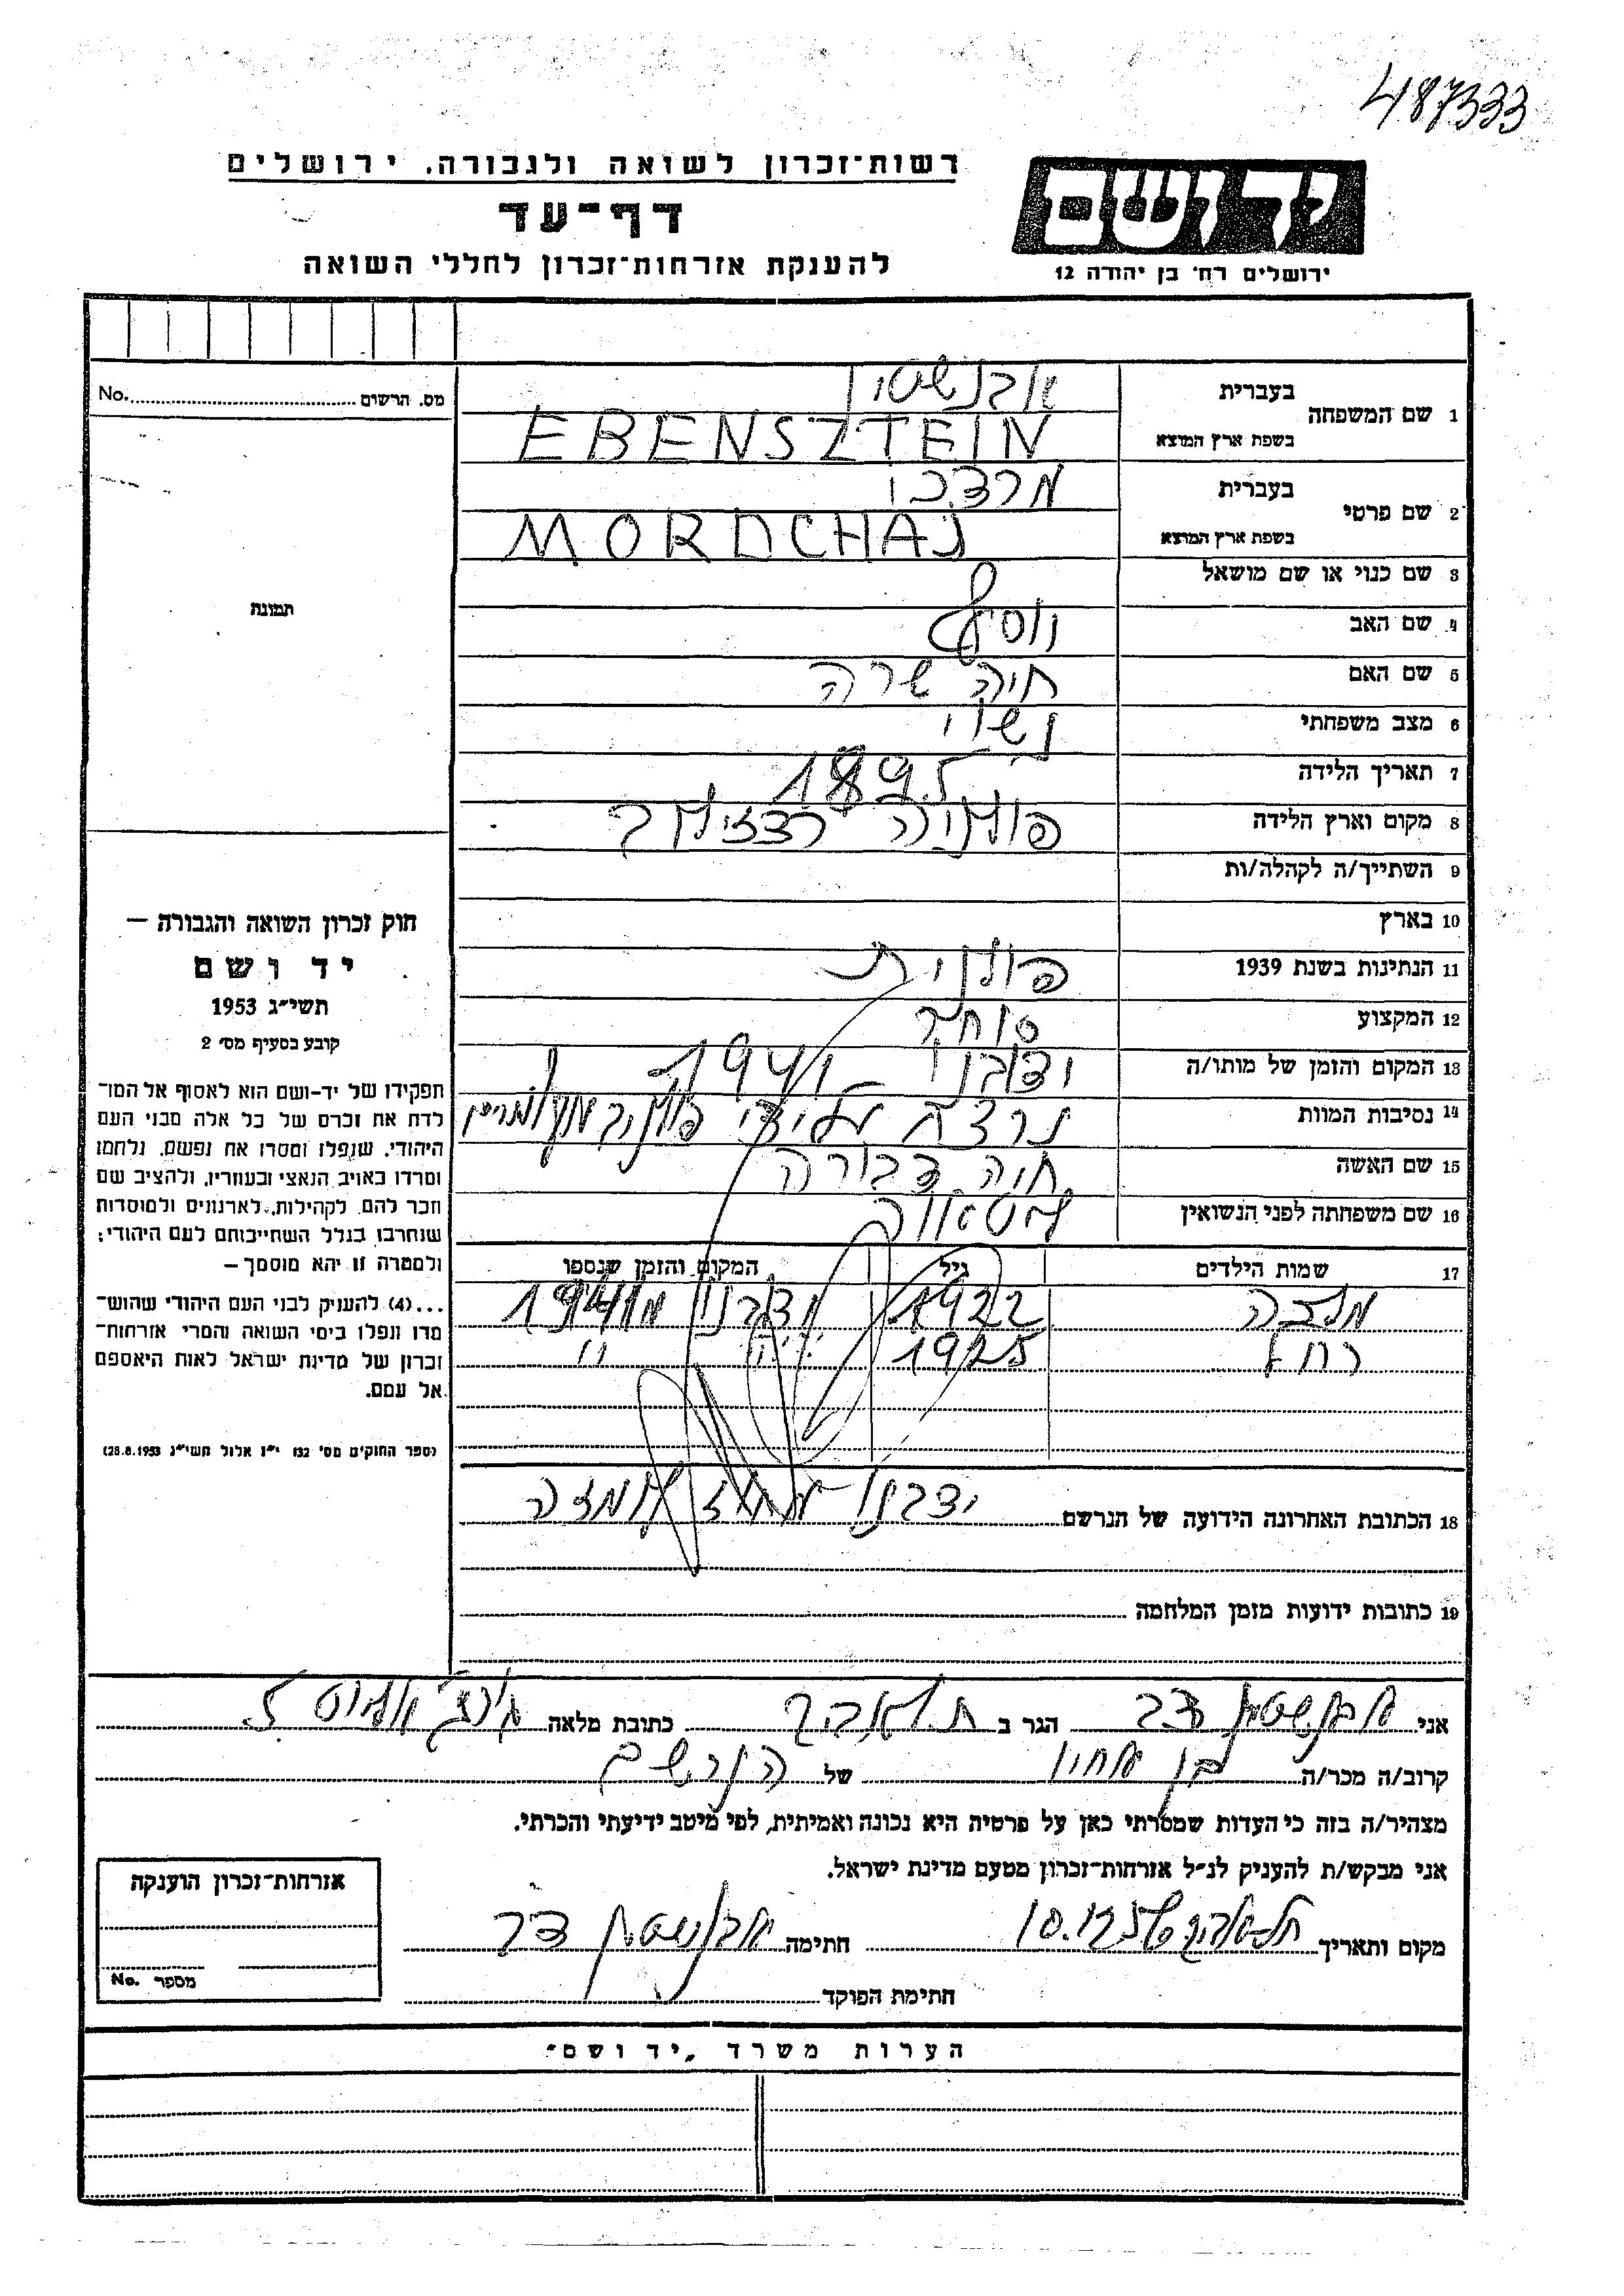 487333
רשות־זכרון לשואה ולגבורה, ירושלים
דף־עד
להענקת אזרחות־זכרון לחללי השואה
יד ושם
ירושלים רח׳ בן יהודה 12
מס. הרשום No.
תמונה
1 שם המשפחה
בעברית
אבנשטיין
בשפת ארץ המוצא
EBENSZTEIN
2 שם פרטי
בעברית
מרדכי
בשפת ארץ המוצא
MORDCHAJ
3 שם כנוי או שם מושאל
4 שם האב יוסף
5 שם האם חיה שרה
6 מצב משפחתי נשוי
7 תאריך הלידה 1895
8 מקום וארץ הלידה פולניה
9 השתייך/ה לקהלה/ות
10 בארץ
11 הנתינות בשנת 1939 פולנית
12 המקצוע סוחר
13 המקום והזמן של מותו/ה ידבנו 1941
14 נסיבות המוות נרצח
15 שם האשה חיה דבורה
16 שם משפחתה לפני הנשואין
17 שמות הילדים גיל המקום והזמן שנספו
מלכה 1922 ידבנו 1941
רחל 1925 " "
18 הכתובת האחרונה הידועה של הנרשם ידבנו
19 כתובות ידועות מזמן המלחמה
חוק זכרון השואה והגבורה —
יד ושם
תשי״ג 1953
קובע בסעיף מס׳ 2
תפקידו של יד־ושם הוא לאסוף אל המו־
לדת את זכרם של כל אלה מבני העם
היהודי, שנפלו ומסרו את נפשם, נלחמו
ומרדו באויב הנאצי ובעוזריו, ולהציב שם
וזכר להם, לקהילות, לארגונים ולמוסדות
שנחרבו בגלל השתייכותם לעם היהודי;
ולמטרה זו יהא מוסמך —
...(4) להעניק לבני העם היהודי שהוש־
מדו ונפלו בימי השואה והמרי אזרחות־
זכרון של מדינת ישראל לאות היאספם
אל עמם.
(ספר החוקים מס׳ 132 י״ז אלול תשי״ג 28.8.1953)
אני אבנשטיין צבי הגר ב תל אביב כתובת מלאה
קרוב/ה מכר/ה בן אחיו של הנרשם
מצהיר/ה בזה כי העדות שמסרתי כאן על פרטיה היא נכונה ואמיתית, לפי מיטב ידיעתי והכרתי.
אני מבקש/ת להעניק לנ״ל אזרחות־זכרון מטעם מדינת ישראל.
מקום ותאריך תל אביב 10.12.57 חתימה אבנשטיין צבי
חתימת הפוקד
אזרחות־זכרון הוענקה
מספר No.
הערות משרד „יד ושם״